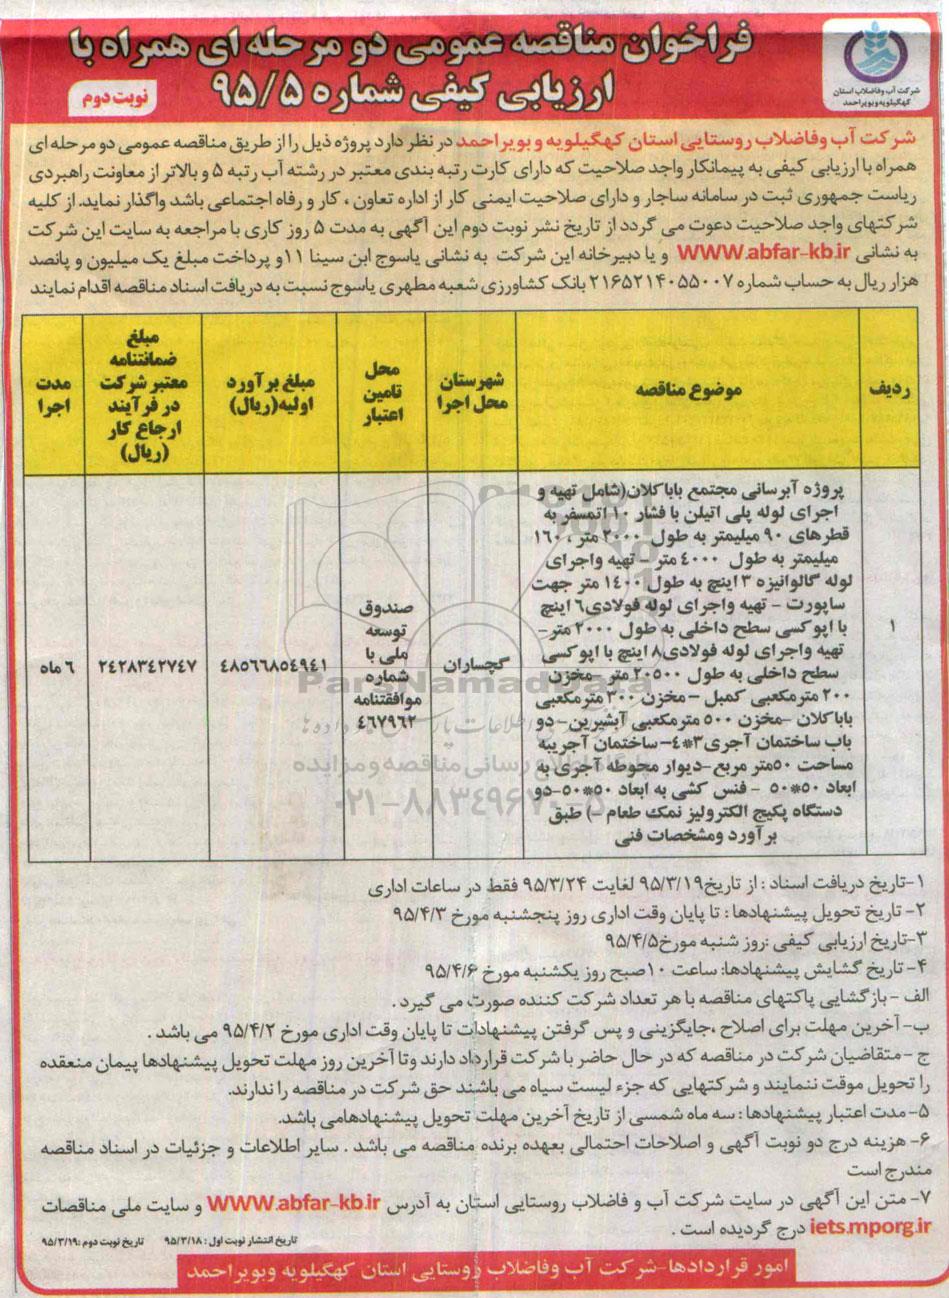 فراخوان مناقصه عمومی دو مرحله ای همراه با
ارزیابی کیفی شماره ۹۵/۵
نوبت دوم
شرکت آب وفاضلاب استان
کهگیلویه وبویراحمد
شرکت آب وفاضلاب روستایی استان کهگیلویه و بویراحمد در نظر دارد پروژه ذیل را از طریق مناقصه عمومی دو مرحله ای
همراه با ارزیابی کیفی به پیمانکار واجد صلاحیت که دارای کارت رتبه بندی معتبر در رشته آب رتبه ۵ و بالاتر از معاونت راهبردی
ریاست جمهوری ثبت در سامانه ساجار و دارای صلاحیت ایمنی کار از اداره تعاون ، کار و رفاه اجتماعی باشد واگذار نماید. از کلیه
شرکتهای واجد صلاحیت دعوت می گردد از تاریخ نشر نوبت دوم این آگهی به مدت ۵ روز کاری با مراجعه به سایت این شرکت
به نشانی WWW.abfar-kb.ir و یا دبیرخانه این شرکت به نشانی یاسوج ابن سینا ۱۱و پرداخت مبلغ یک میلیون و پانصد
هزار ریال به حساب شماره ۲۱۶۵۲۱۴۰۵۵۰۰۷ بانک کشاورزی شعبه مطهری یاسوج نسبت به دریافت اسناد مناقصه اقدام نمایند
ردیف
موضوع مناقصه
شهرستان
محل اجرا
محل
تامین
اعتبار
مبلغ برآورد
اولیه(ریال)
مبلغ
ضمانتنامه
معتبر شرکت
در فرآیند
ارجاع کار
(ریال)
مدت
اجرا
۱
پروژه آبرسانی مجتمع باباکلان(شامل تهیه و
اجرای لوله پلی اتیلن با فشار ۱۰ اتمسفر به
قطرهای ۹۰ میلیمتر به طول ۲۰۰۰ متر ، ۱۶۰
میلیمتر به طول ۴۰۰۰ متر - تهیه واجرای
لوله گالوانیزه ۳ اینچ به طول ۱۴۰۰ متر جهت
ساپورت - تهیه واجرای لوله فولادی۶ اینچ
با اپوکسی سطح داخلی به طول ۲۰۰۰ متر-
تهیه واجرای لوله فولادی۸ اینچ با اپوکسی
سطح داخلی به طول ۲۰۵۰۰ متر - مخزن
۲۰۰ مترمکعبی کمبل - مخزن ۳۰۰ مترمکعبی
باباکلان -مخزن ۵۰۰ مترمکعبی آبشیرین- دو
باب ساختمان آجری۳*۴- ساختمان آجریبه
مساحت ۵۰متر مربع-دیوار محوطه آجری به
ابعاد ۵۰*۵۰ - فنس کشی به ابعاد ۵۰*۵۰-دو
دستگاه پکیج الکترولیز نمک طعام -) طبق
برآورد ومشخصات فنی
گچساران
صندوق
توسعه
ملی با
شماره
موافقتنامه
۴۶۷۹۶۲
۴۸۵۶۶۸۵۴۹۴۱
۲۴۲۸۳۴۲۷۴۷
۶ ماه
ParsNamadData
۰۲۱-۸۸۳۴۹۶۷۰-۵
۱-تاریخ دریافت اسناد : از تاریخ۹۵/۳/۱۹ لغایت ۹۵/۳/۲۴ فقط در ساعات اداری
۲- تاریخ تحویل پیشنهادها : تا پایان وقت اداری روز پنجشنبه مورخ ۹۵/۴/۳
۳-تاریخ ارزیابی کیفی :روز شنبه مورخ۹۵/۴/۵
۴- تاریخ گشایش پیشنهادها: ساعت ۱۰صبح روز یکشنبه مورخ ۹۵/۴/۶
الف - بازگشایی پاکتهای مناقصه با هر تعداد شرکت کننده صورت می گیرد .
ب- آخرین مهلت برای اصلاح ،جایگزینی و پس گرفتن پیشنهادات تا پایان وقت اداری مورخ ۹۵/۴/۲ می باشد .
ج - متقاضیان شرکت در مناقصه که در حال حاضر با شرکت قرارداد دارند وتا آخرین روز مهلت تحویل پیشنهادها پیمان منعقده
را تحویل موقت ننمایند و شرکتهایی که جزء لیست سیاه می باشند حق شرکت در مناقصه را ندارند.
۵- مدت اعتبار پیشنهادها : سه ماه شمسی از تاریخ آخرین مهلت تحویل پیشنهادهامی باشد.
۶- هزینه درج دو نوبت آگهی و اصلاحات احتمالی بعهده برنده مناقصه می باشد . سایر اطلاعات و جزئیات در اسناد مناقصه
مندرج است
۷- متن این آگهی در سایت شرکت آب و فاضلاب روستایی استان به آدرس WWW.abfar-kb.ir و سایت ملی مناقصات
iets.mporg.ir درج گردیده است .
تاریخ انتشار نوبت اول : ۹۵/۳/۱۸ تاریخ نوبت دوم :۹۵/۳/۱۹
امور قراردادها-شرکت آب وفاضلاب روستایی استان کهگیلویه وبویراحمد